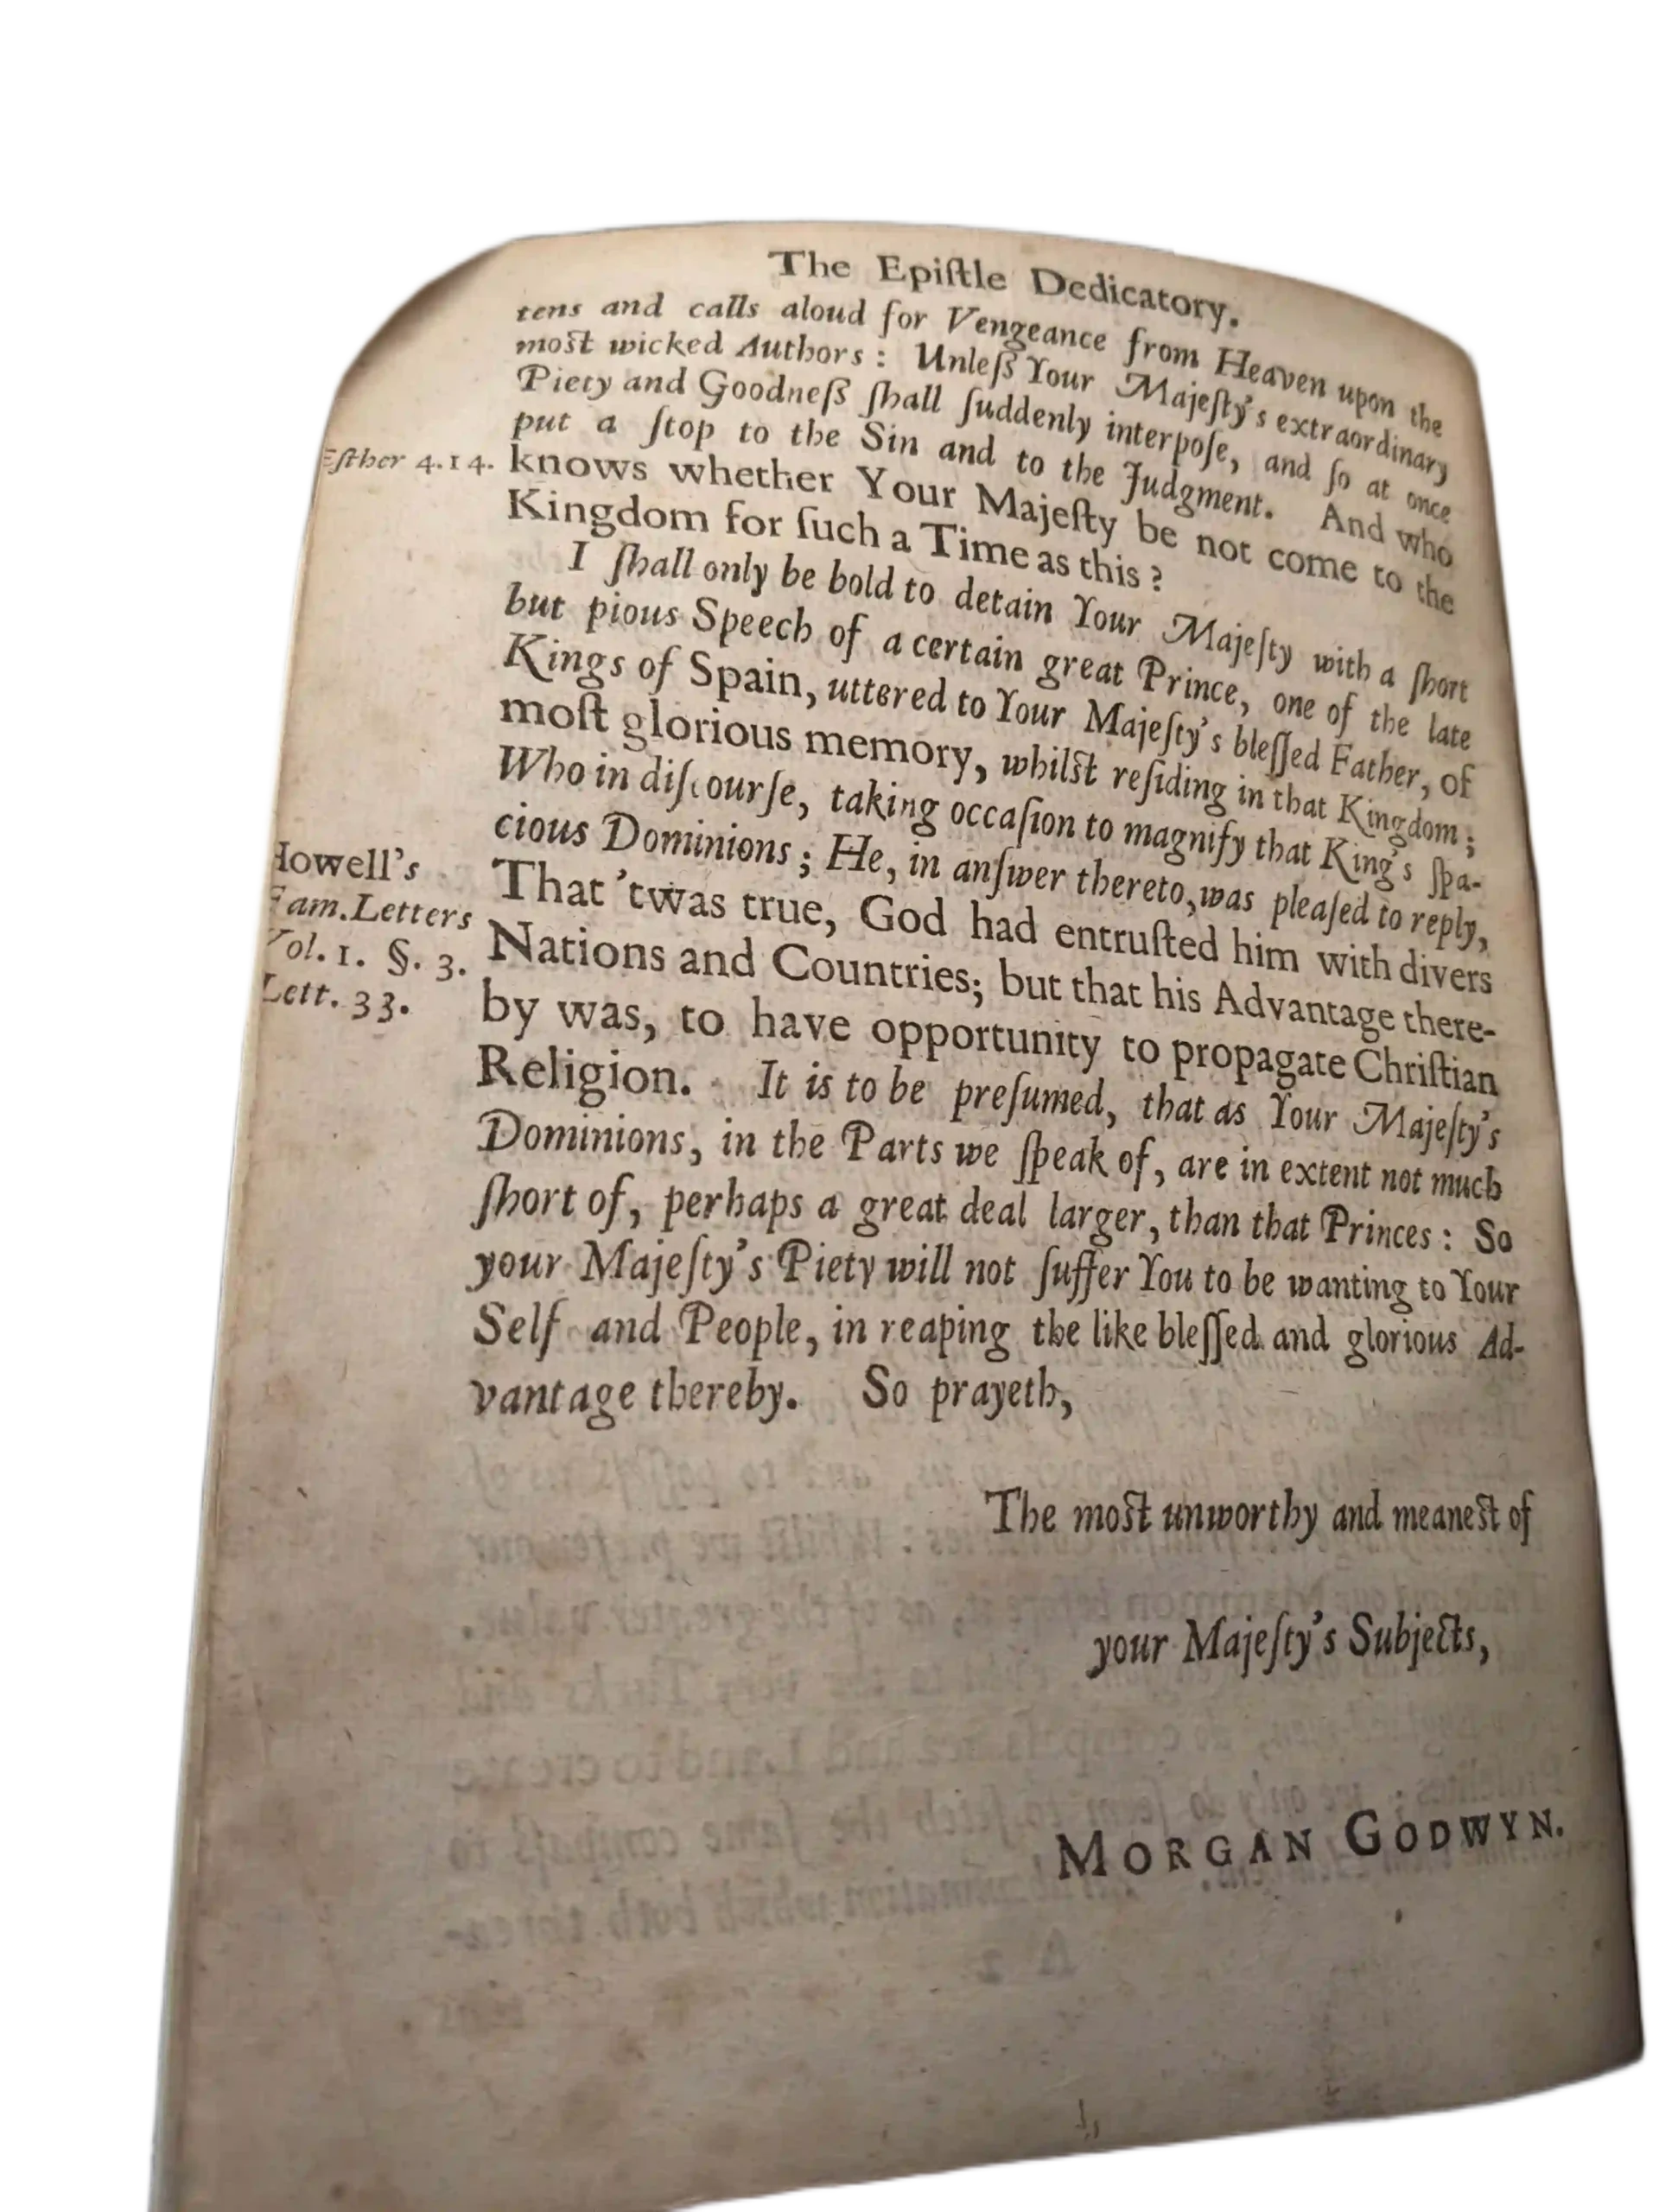 The Epiſtle Dedicatory.
tens and calls aloud for Vengeance from Heaven upon the
moſt wicked Authors: Unleſs Your Majeſty's extraordinary
Piety and Goodneſs ſhall ſuddenly interpoſe, and ſo at once
put a ſtop to the Sin and to the Judgment. And who
Eſther 4.14. knows whether Your Majeſty be not come to the
Kingdom for ſuch a Time as this?
I ſhall only be bold to detain Your Majeſty with a ſhort
but pious Speech of a certain great Prince, one of the late
Kings of Spain, uttered to Your Majeſty's bleſſed Father, of
moſt glorious memory, whilſt reſiding in that Kingdom;
Who in diſcourſe, taking occaſion to magnify that King's ſpa-
cious Dominions; He, in anſwer thereto, was pleaſed to reply,
Howell's
Fam. Letters
Vol. 1. §. 3.
Lett. 33.
That 'twas true, God had entruſted him with divers
Nations and Countries; but that his Advantage there-
by was, to have opportunity to propagate Chriſtian
Religion. It is to be preſumed, that as Your Majeſty's
Dominions, in the Parts we ſpeak of, are in extent not much
ſhort of, perhaps a great deal larger, than that Princes: So
your Majeſty's Piety will not ſuffer You to be wanting to Your
Self and People, in reaping the like bleſſed and glorious Ad-
vantage thereby. So prayeth,
The moſt unworthy and meaneſt of
your Majeſty's Subjects,
MORGAN GODWYN.